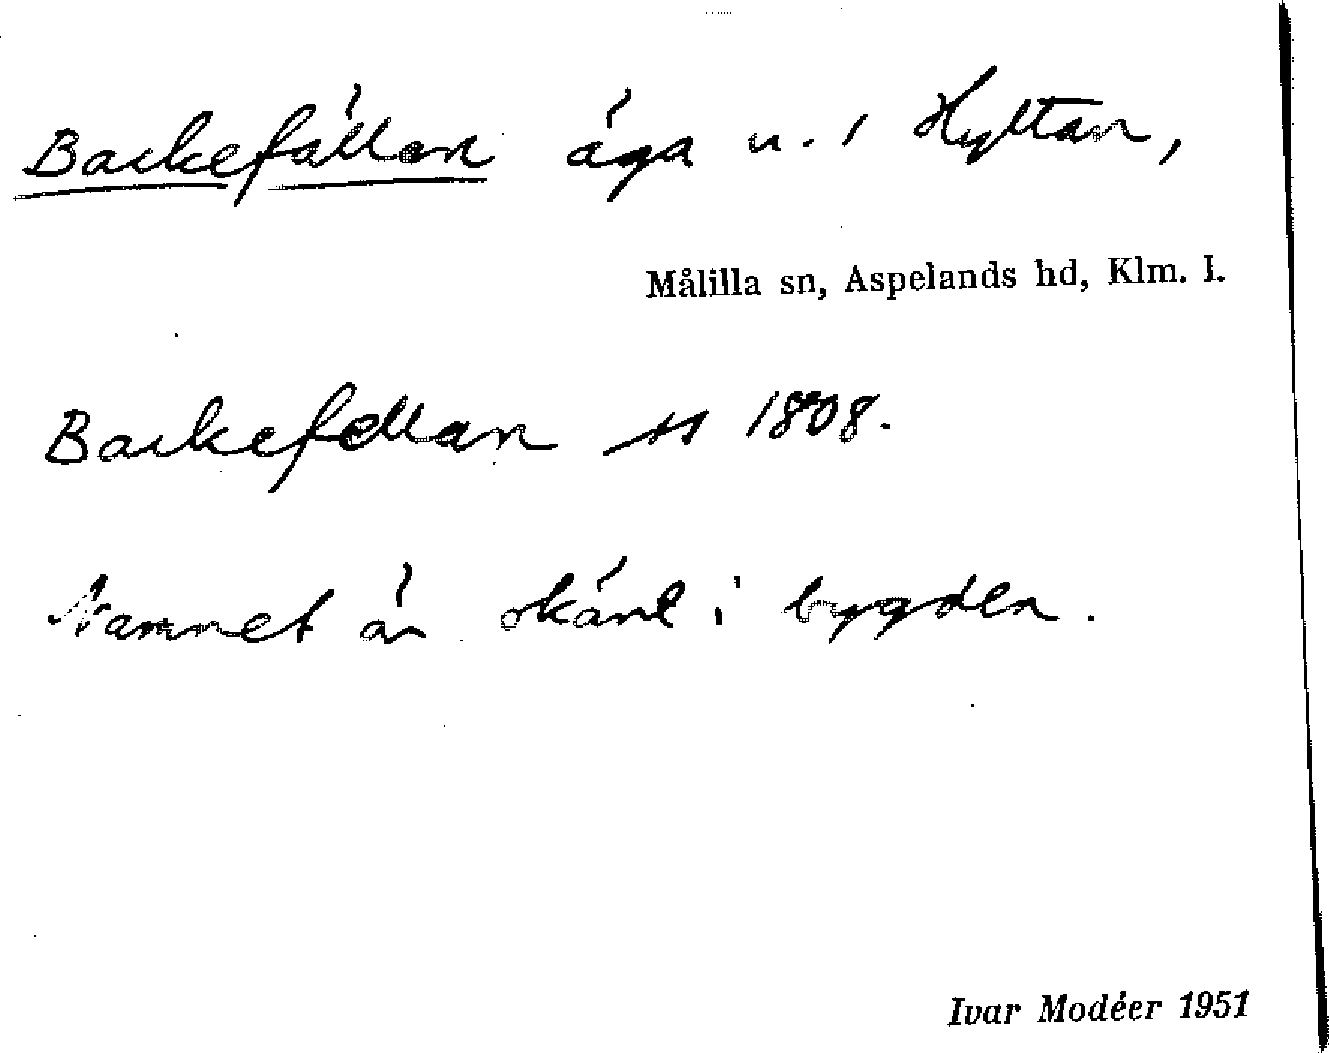 Backefällan äga u. i Hyltan,
Målilla sn, Aspelands hd, Klm. l.
Backefellan 1808.
Namnet är okänt i bygden.
Ivar Modéer 1951